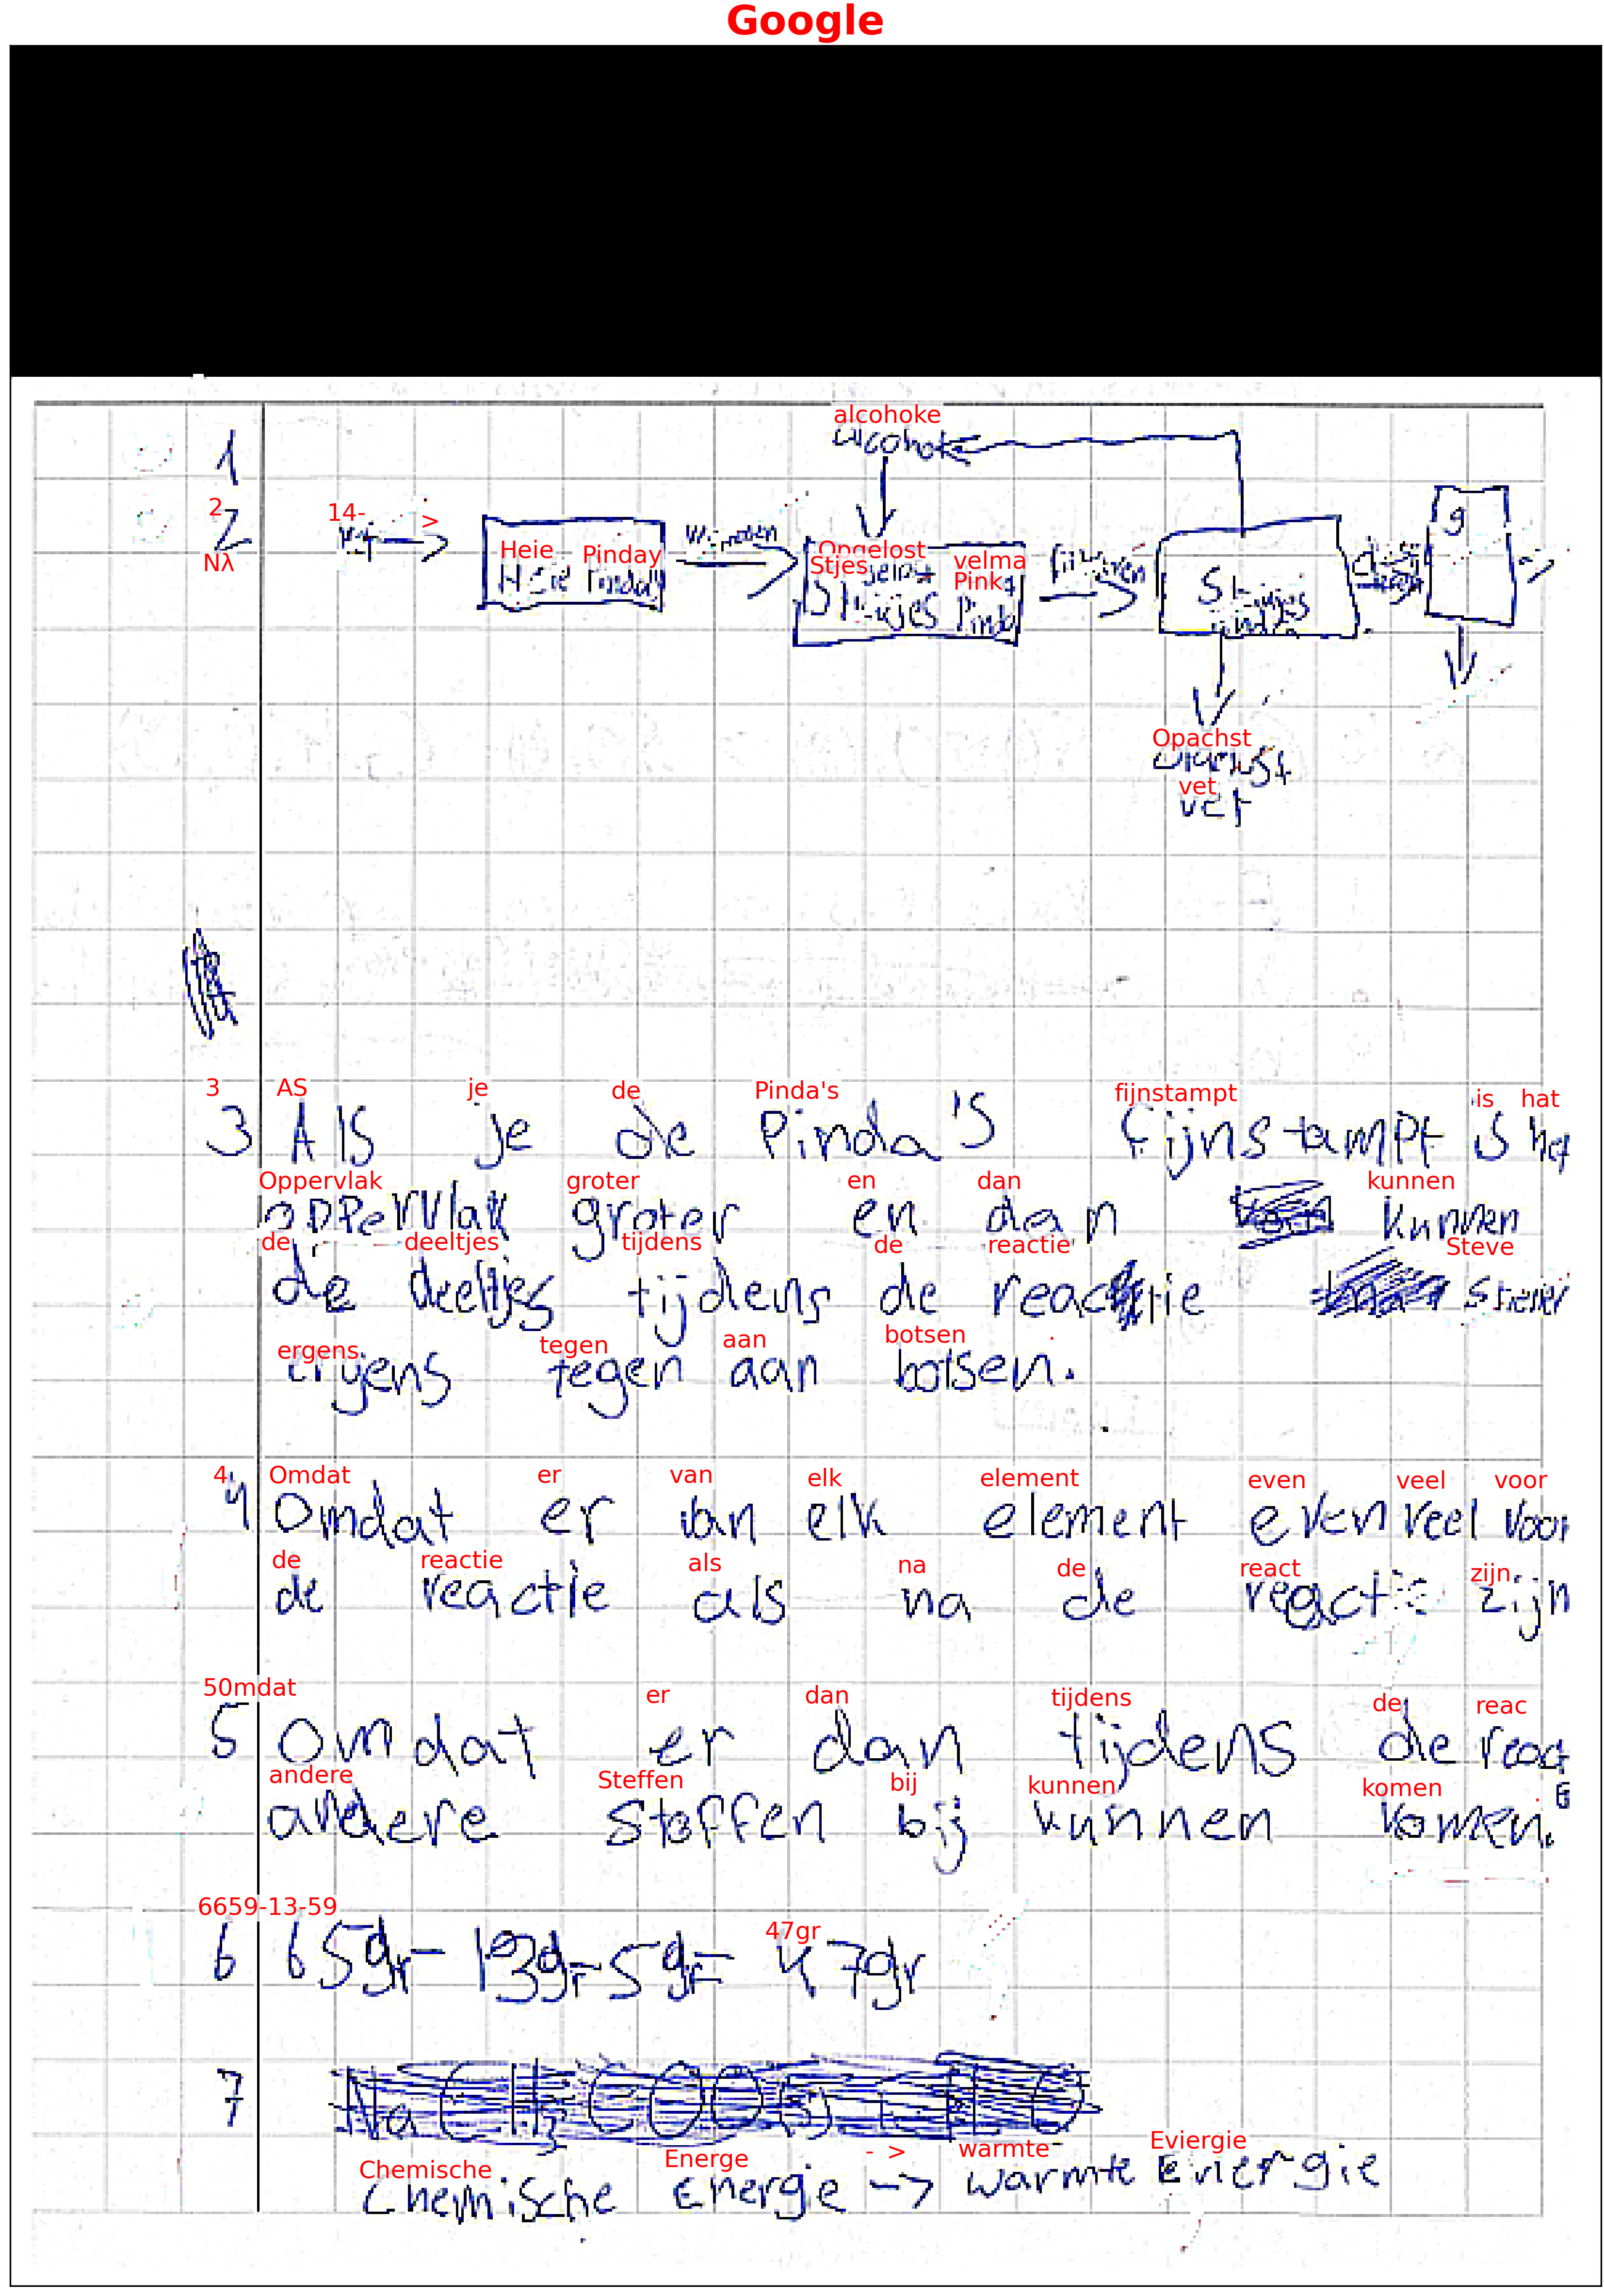 Google
alcohoke
alcohol
1
2
2
14-
>
Nλ
Heie Pinday
Hele Pinda's
Opgelost velma
Stjes Pink
Stukjes Pinda
filtreren
Stukjes
g
Opachst
vet
vet
3 AS je de Pinda's fijnstampt is hat
3 Als je de Pinda's fijnstampt is het
Oppervlak groter en dan kunnen
oppervlak groter en dan kunnen
de deeltjes tijdens de reactie Steve
de deeltjes tijdens de reactie
ergens tegen aan botsen .
ergens tegen aan botsen.
4 Omdat er van elk element even veel voor
4 Omdat er van elk element even veel voor
de reactie als na de react zijn
de reactie als na de reactie zijn
50mdat er dan tijdens de reac
5 Omdat er dan tijdens de react
andere Steffen bij kunnen komen .
andere stoffen bij kunnen komen.
6659-13-59 47gr
6 65gr- 13gr-5gr= 47gr
7
Chemische Energe - > warmte Eviergie
Chemische Energie -> warmte Energie